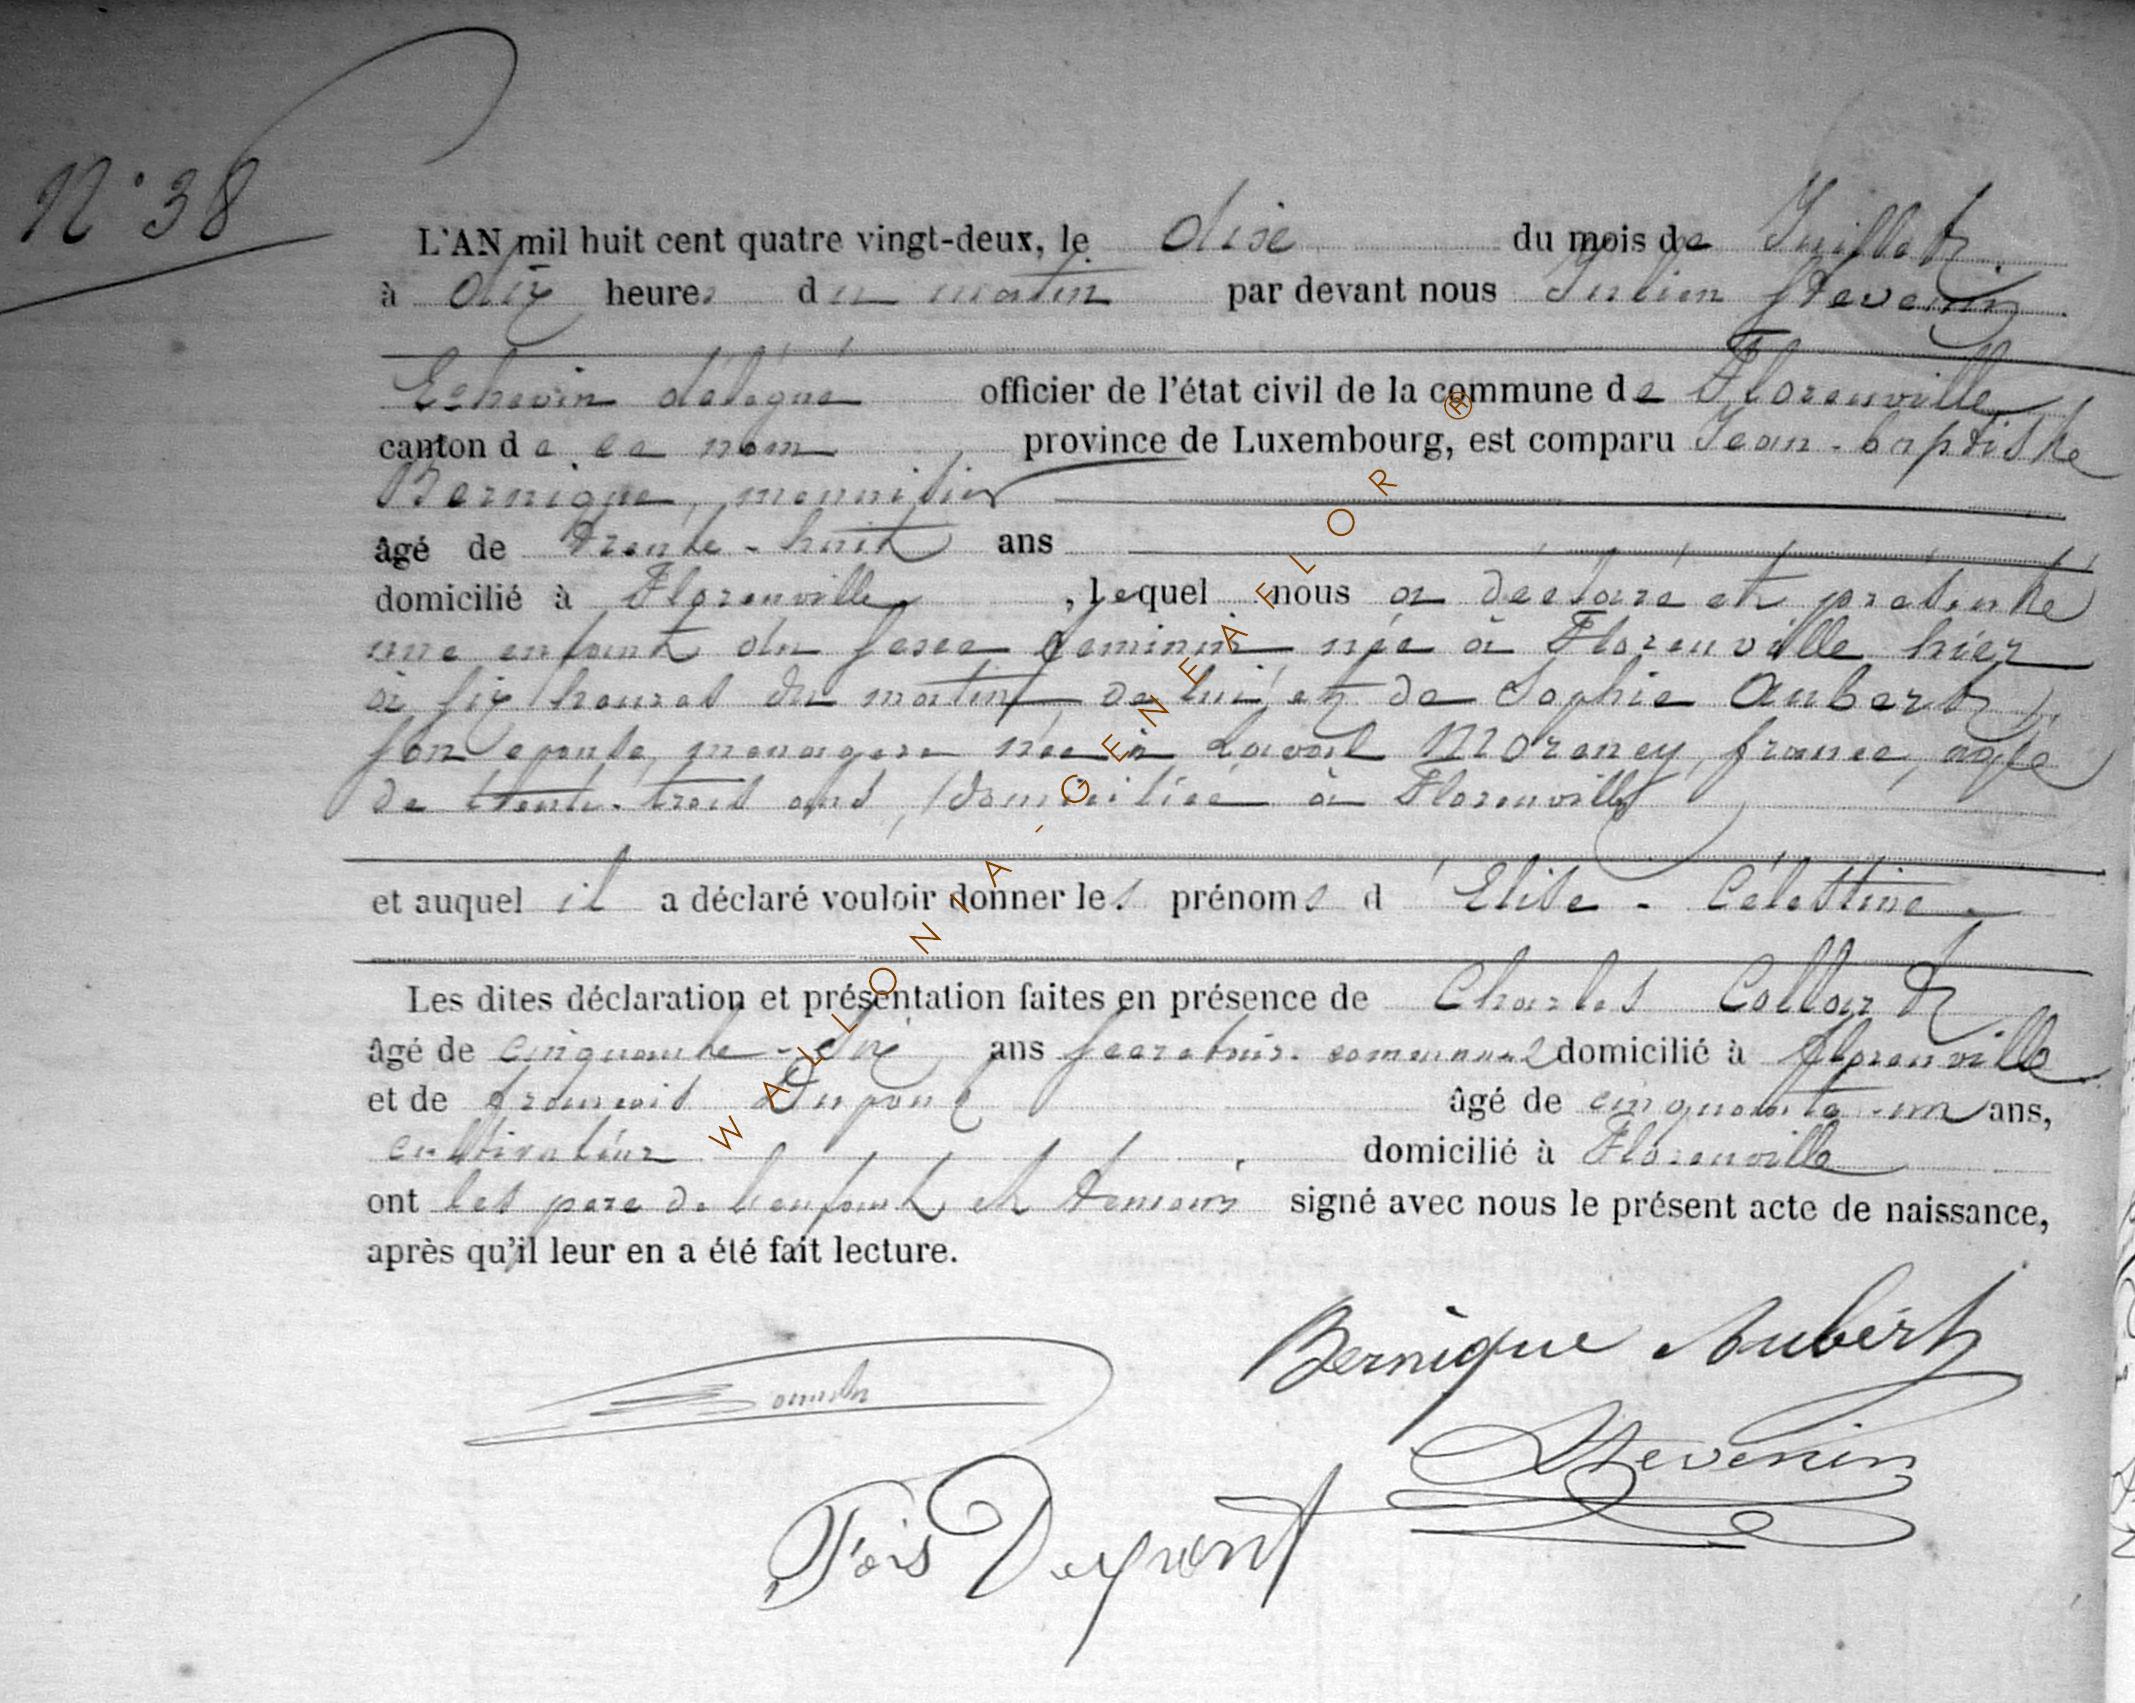 N° 38
L'AN mil huit cent quatre vingt-deux, le dix du mois de Juillet
à dix heures du matin par devant nous Julien Stevenin
Echevin délégué officier de l'état civil de la commune de Florenville
canton de ce nom province de Luxembourg, est comparu Jean-baptiste
Bernique, menuisier
âgé de trente-huit ans
domicilié à Florenville, lequel nous a déclaré et présenté
une enfant du sexe feminin née à Florenville hier
à six heures du matin, de lui et de Sophie Aubert,
son epouse, menagere née à Lavail Morency, france, agée
de trente-trois ans, domiciliée à Florenville
et auquel il a déclaré vouloir donner les prénoms d'Elise-Célestine
Les dites déclaration et présentation faites en présence de Charles Collart
âgé de cinquante-six ans secretaire communal domicilié à florenville
et de francois Dupont âgé de cinquante-un ans,
cultivateur domicilié à Florenville
ont les pere de l'enfant et temoins signé avec nous le présent acte de naissance,
après qu'il leur en a été fait lecture.
Bernique Aubert
Stevenin
Fois Dupont
WALLONIA-GENEAFLOR ®